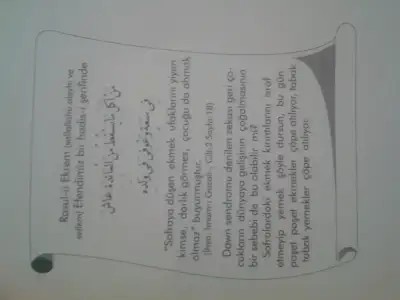 Rasul-ü Ekrem (sallallahu aleyhi ve
sellem) Efendimiz bir hadis-i şerifinde
مَنْ أَكَلَ مَا يَسْقُطُ مِنَ الْمَائِدَةِ عَاشَ
فِي سَعَةٍ وَعُوفِيَ فِي وَلَدِهِ
"Sofraya düşen ekmek ufaklarını yiyen
kimse, darlık görmez, çocuğu da ahmak
olmaz" buyurmuştur.
(İhya, İmam-ı Gazali, Cilt:2 Sayfa:18)
Down sendromu denilen zekası geri ço-
cukların dünyaya gelişinin çoğalmasının
bir sebebi de bu olabilir mi?
Sofralardaki ekmek kırıntılarını israf
etmeyip yemek şöyle dursun, bu gün
poşet poşet ekmekler çöpe atılıyor, tabak
tabak yemekler çöpe atılıyor.